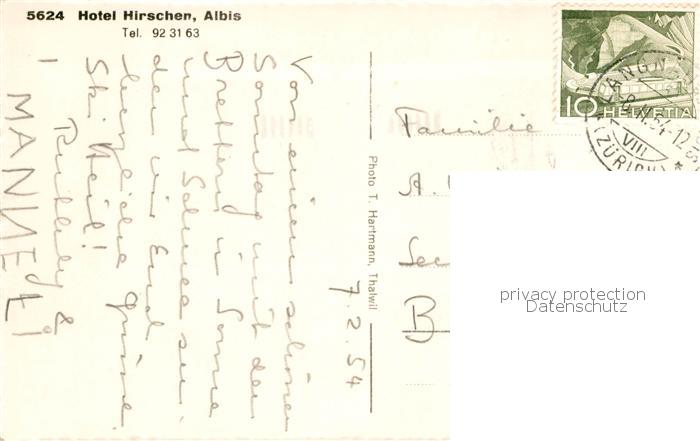 5624 Hotel Hirschen, Albis
Tel. 92 31 63
Von einem schönen
Sonntag mit den
Brettern in Sonne
und Schnee sen-
den wir Euch
herzliche Grüsse.
Ski Heil!
Ruthly &
MANNELI
Photo T. Hartmann, Thalwil
7.2.54
Familie
A.
See
B
10 HELVETIA
LANGN
VIII
(ZÜRICH)
privacy protection
Datenschutz